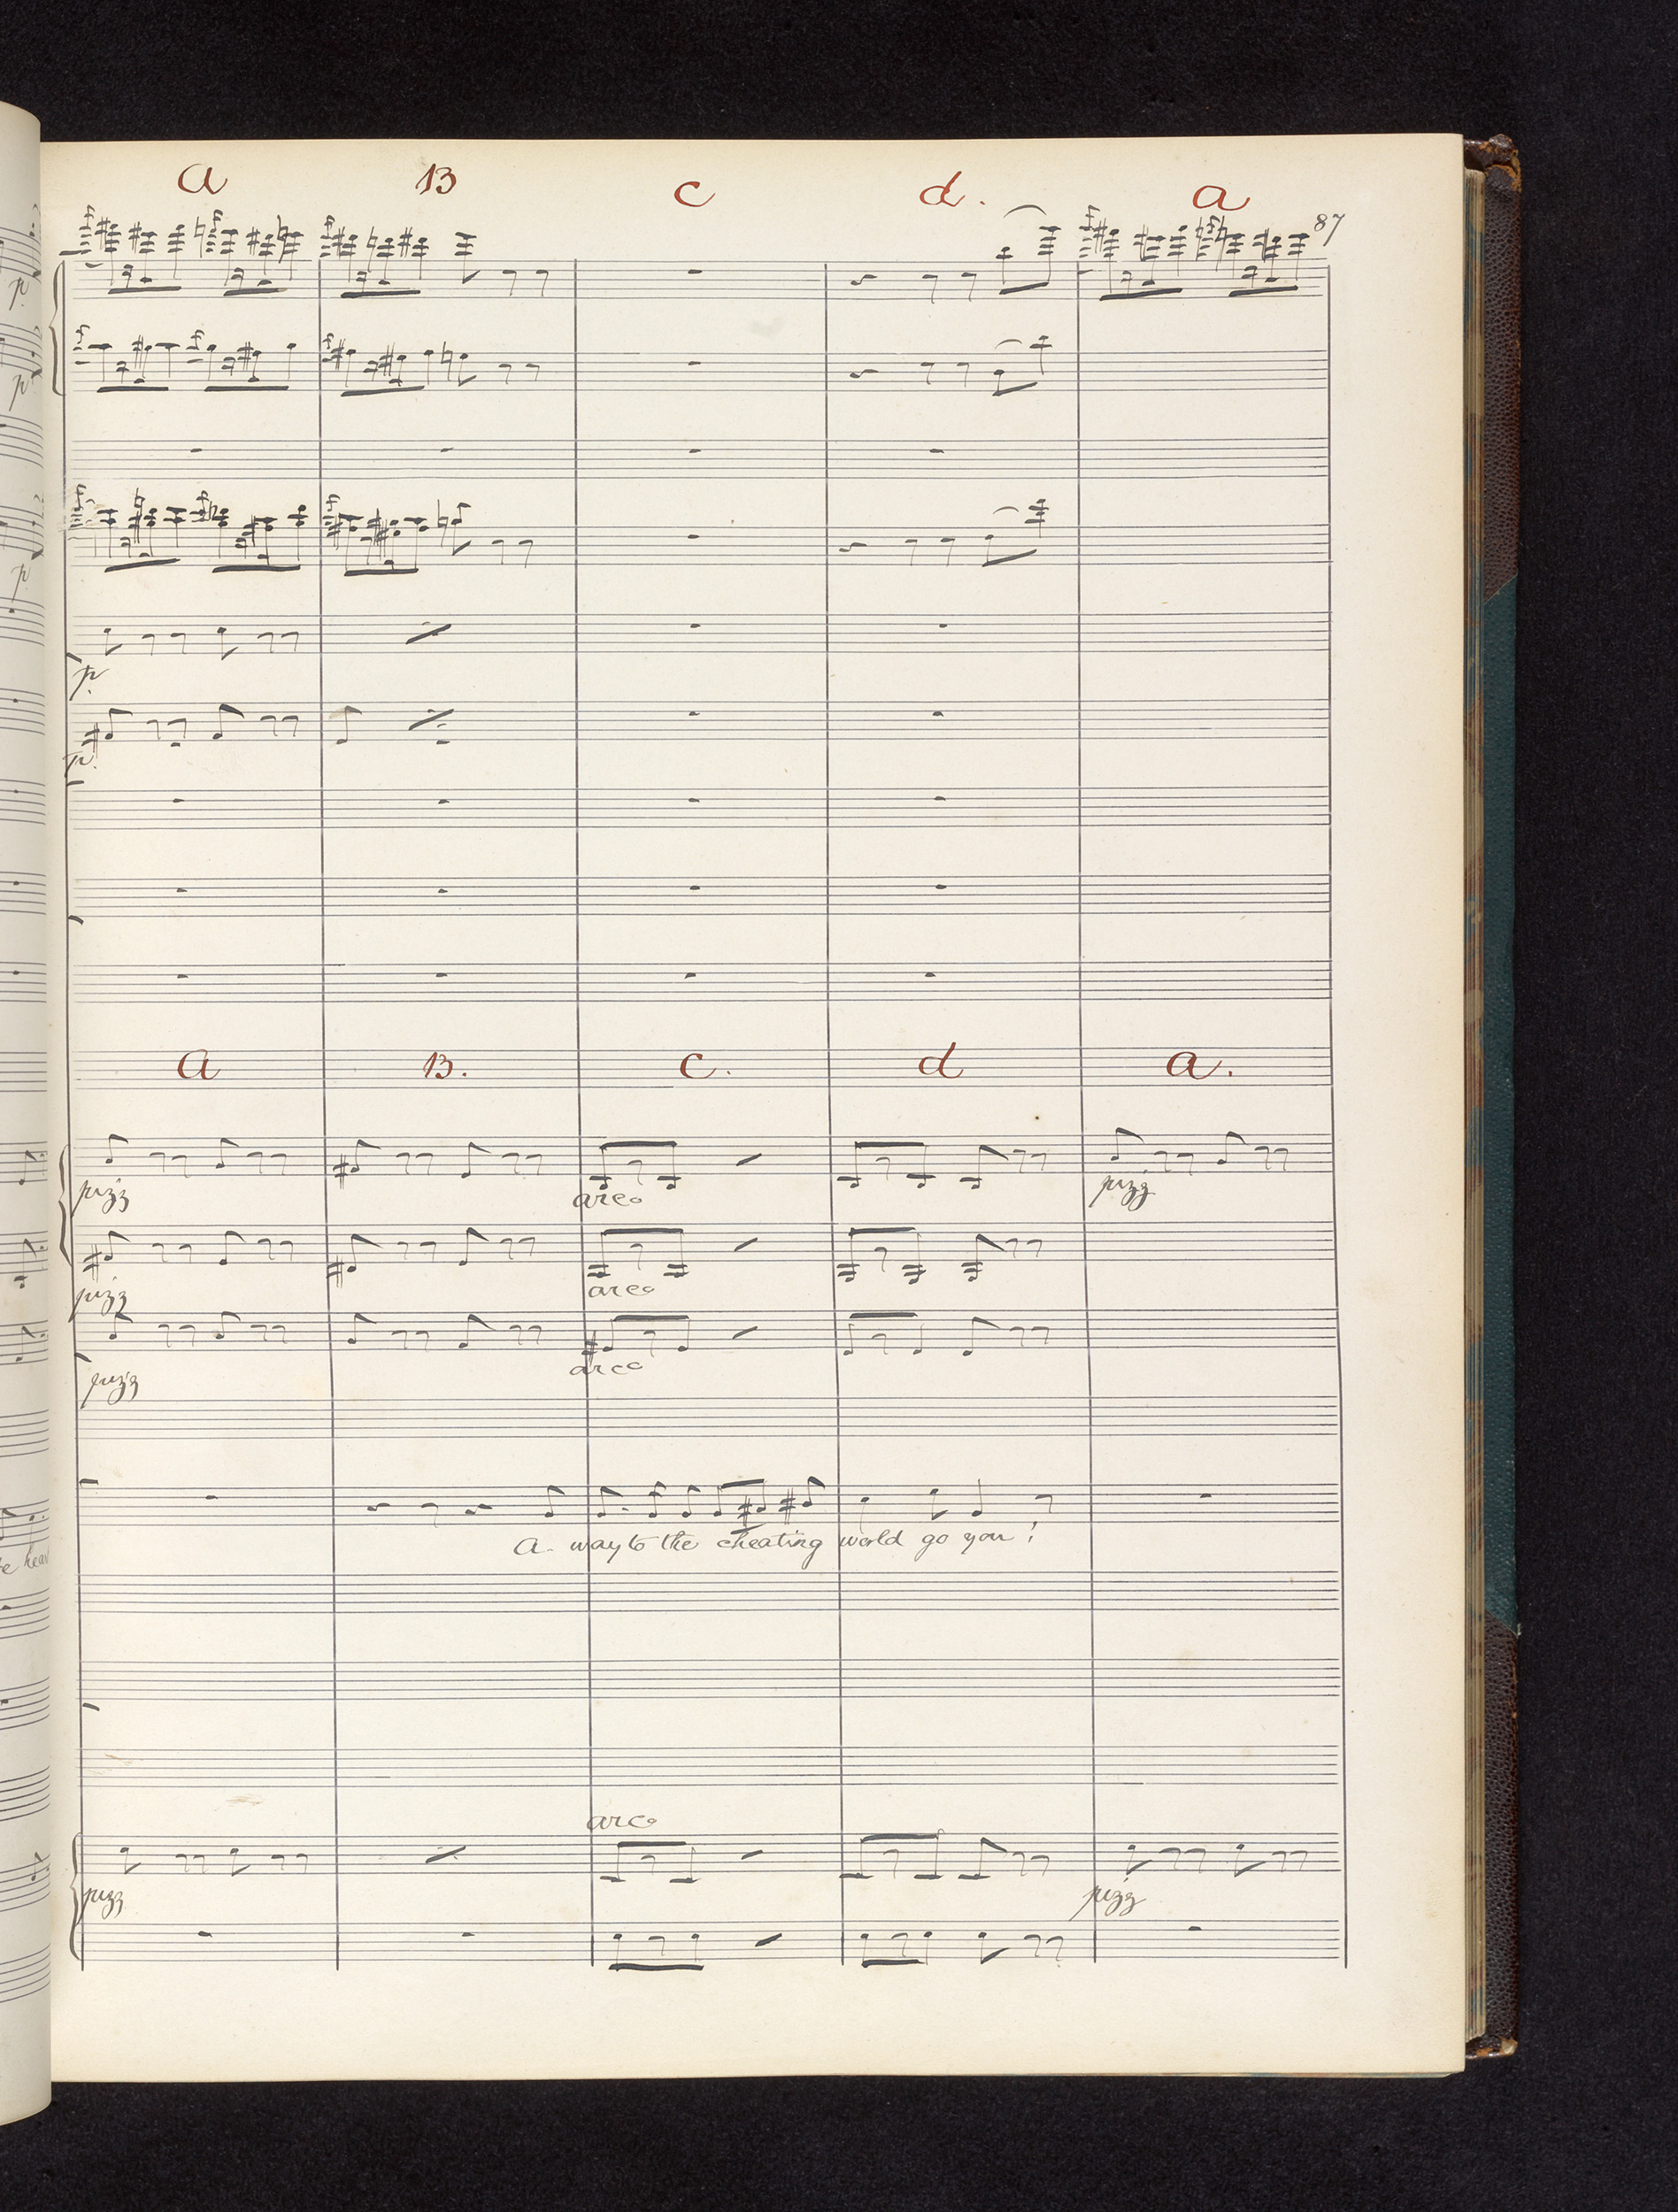 a B c d. a
87
p.
p.
a B. c. d a.
pizz arco pizz
pizz arco
pizz arco
A- way to the cheating world go you!
arco
pizz pizz